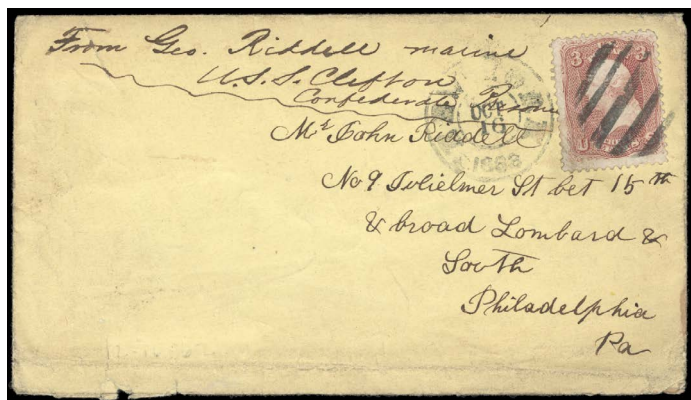 From Geo. Riddell marine
U.S.S. Clifton
Confederate Prisoner
Mr John Riddell
No 9 Tulielmer St bet 15th
& broad Lombard &
South
Philadelphia
Pa
OCT
16
1863
3 3
U